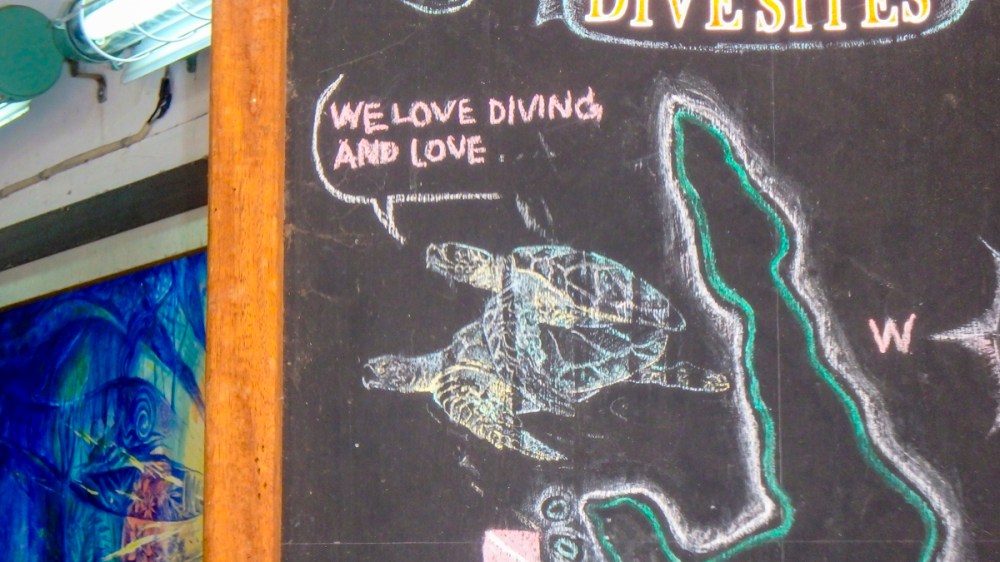 DIVE SITES
WE LOVE DIVING,
AND LOVE
W